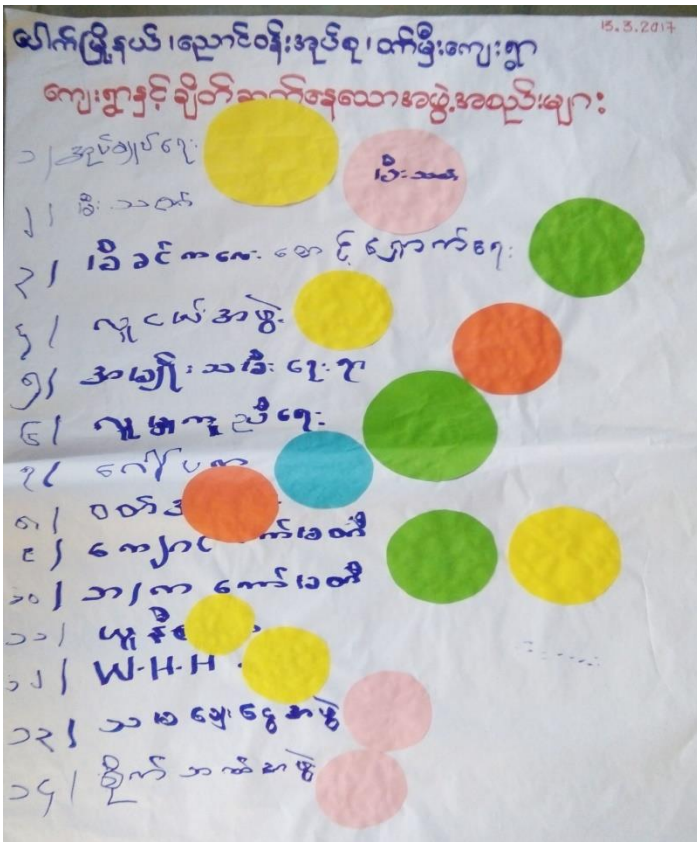 15.3.2017
ပေါက်မြို့နယ်၊ညောင်ဝန်းအုပ်စု၊တမ်မှီးကျေးရွာ
ကျေးရွာနှင့်ချိတ်ဆက်နေသောအဖွဲ့အစည်းများ
၁/ အုပ်ချုပ်ရေး
မီးသတ်
၂/ မီးသတ်
၃/ မိခင်ကလေးစောင့်ရှောက်ရေး
၄/ လူငယ်အဖွဲ့
၅/ အမျိုးသမီးရေးရာ
၆/ လူမှုကူညီရေး
၇/ ဂေါပက
၈/ ဝတ်အ
၉/ ကျောင်းကော်မတီ
၁၀/ ဘ/က ကော်မတီ
၁၁/
၁၂/ W.H.H
၁၃/ သမဝါယမအဖွဲ့
၁၄/ စိုက်